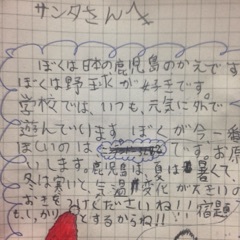 サンタさんへ
ぼくは日本の鹿児島のかえです
ぼくは野球が好きです。
学校では、いつも、元気に外で
遊んでいます。ぼくが今一番
ほしいのは です。お願
いします。鹿児島は、夏は暑くて、
冬は寒いて、気温 変化が大きい
おきを つけてくださいね!! 宿題
も、しっかり とするからね!!